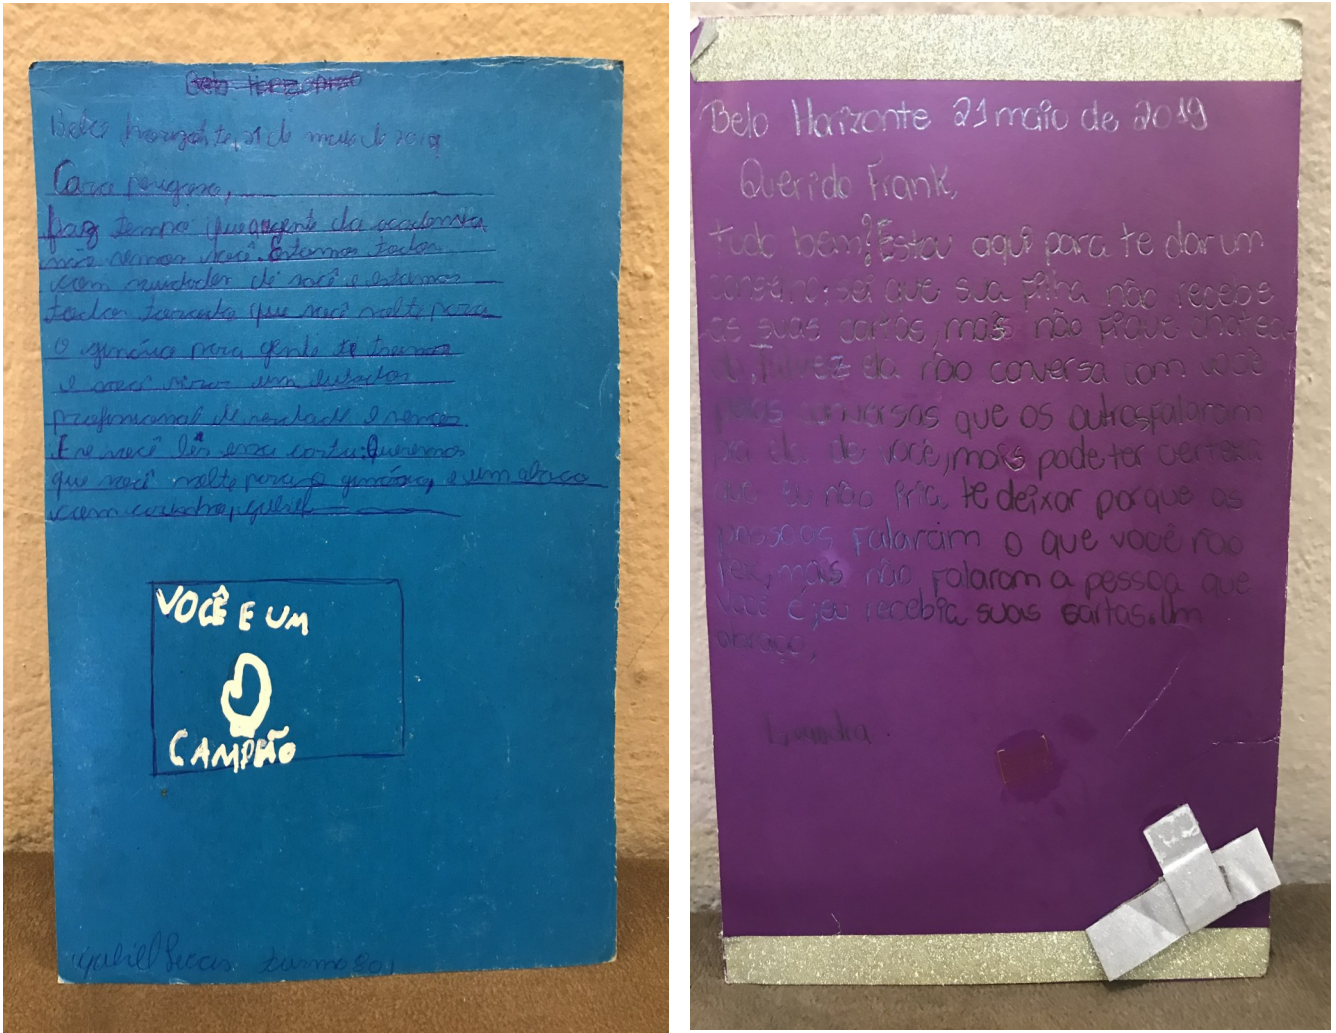 Belo Horizonte
Belo horizonte, 21 de maio de 2019
Cara perigosa,
faz tempo que agente da academia
não vemos você. Estamos todos
com saudades de você e estamos
todos torcendo que você volte para
o ginásio para gente te
e você virar um lutador
profissional de verdade e vencer.
E se você lês essa carta: Queremos
que você volte para o ginásio, e um abraço
com carinho,
VOCÊ E UM
CAMPEÃO
Gabriel turma 801
Belo Horizonte 21 maio de 2019
Querido Frank,
tudo bem? Estou aqui para te dar um
conselho: sei que sua filha não recebe
as suas cartas, mais não fique chatea-
do, talvez ela não conversa com você
pelas conversas que os outros falaram
pra ela de você, mais pode ter certeza
que eu não iria, te deixar porque as
pessoas falaram o que você não
fez, mais não falaram a pessoa que
você é, eu recebia suas cartas. Um
abraço,